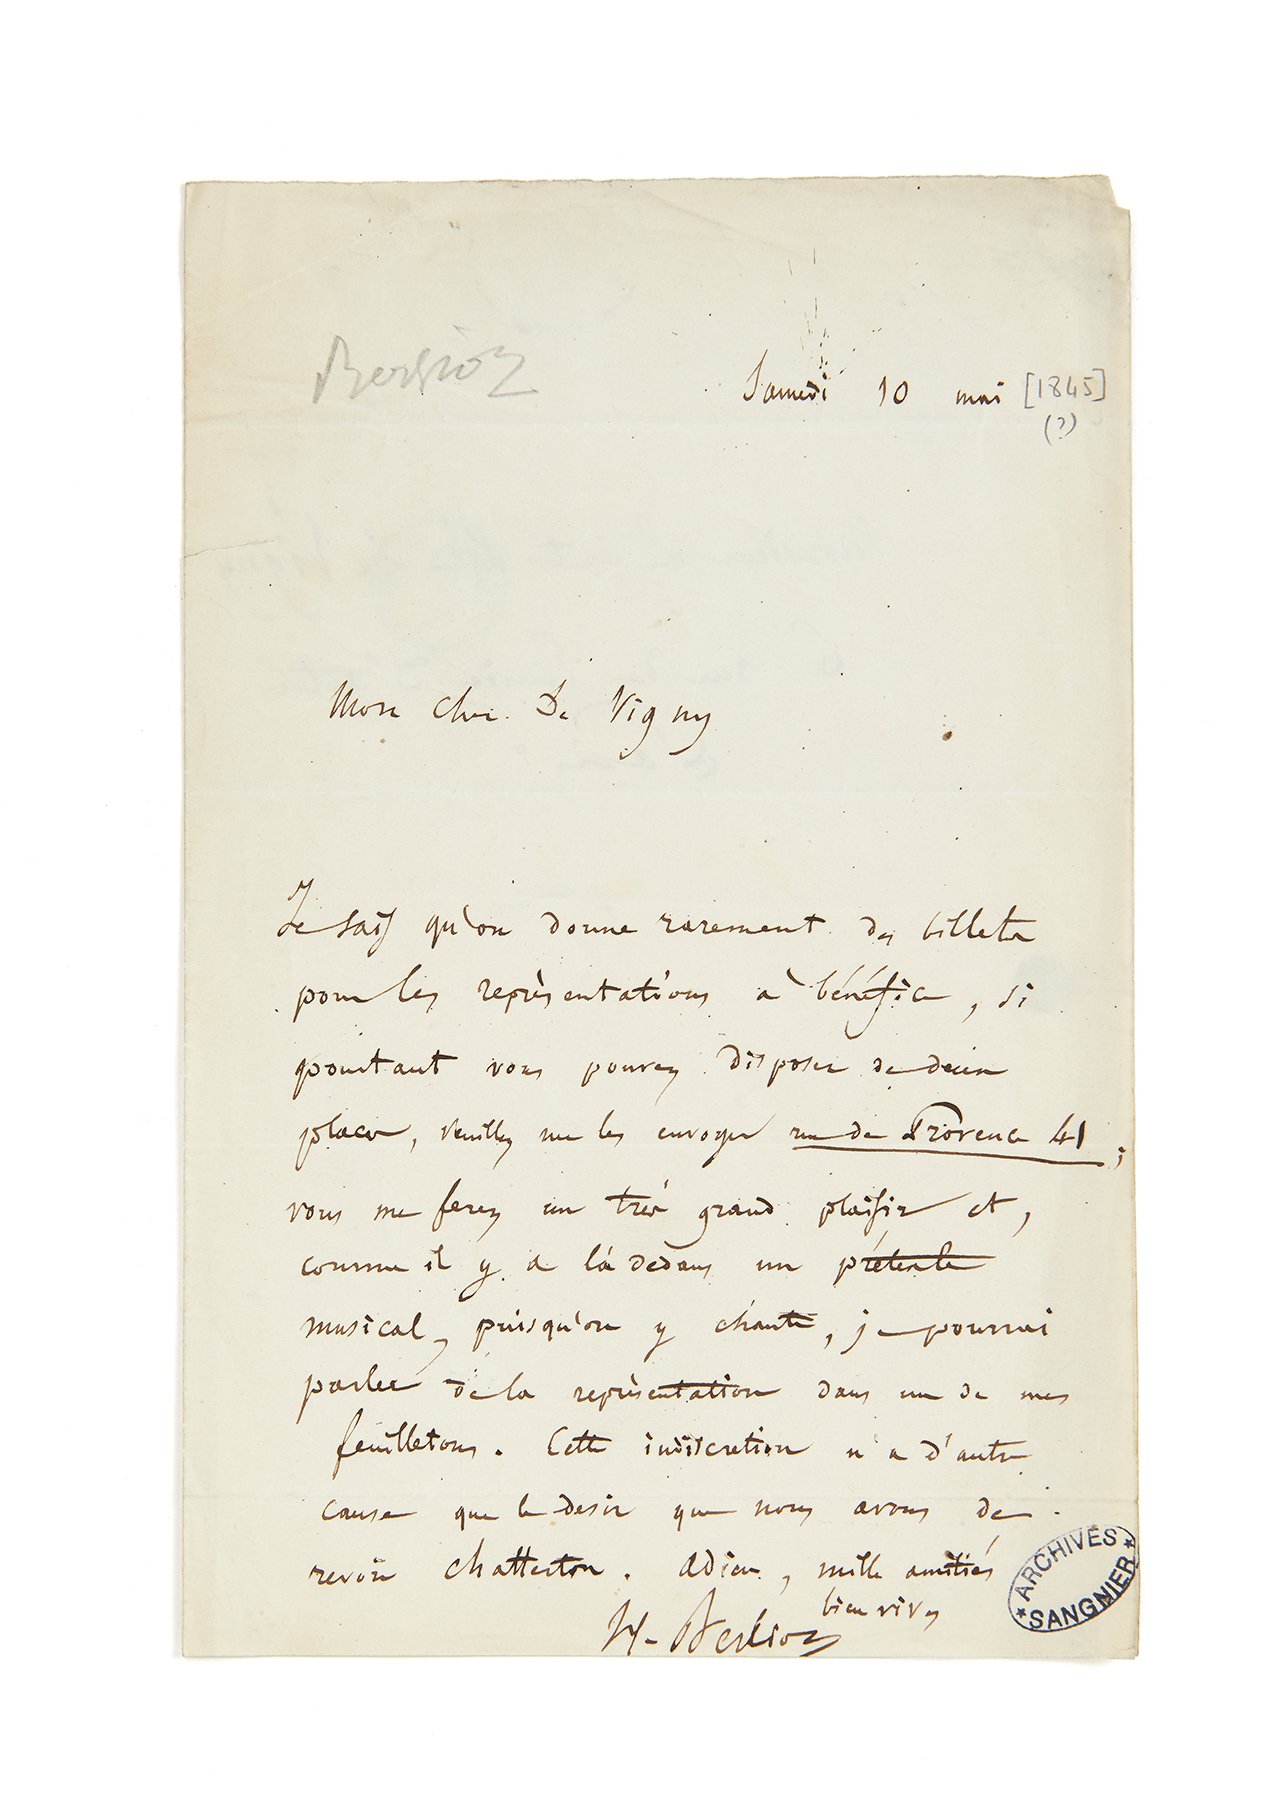 Berlioz
Samedi 10 mai [1845]
(?)
Mon cher De Vigny
Je sais qu'on donne rarement des billets
pour les représentations à bénéfice, si
pourtant vous pouvez disposer de deux
places, veuillez me les envoyer rue de Provence 41;
vous me ferez un très grand plaisir et,
comme il y a là dedans un prétexte
musical, puisqu'on y chante, je pourrai
parler de la représentation dans un de mes
feuilletons. Cette indiscretion n'a d'autre
cause que le desir que nous avons de
revoir chatterton. Adieu, mille amitiés
bien vives
H. Berlioz
ARCHIVES
SANGNIER